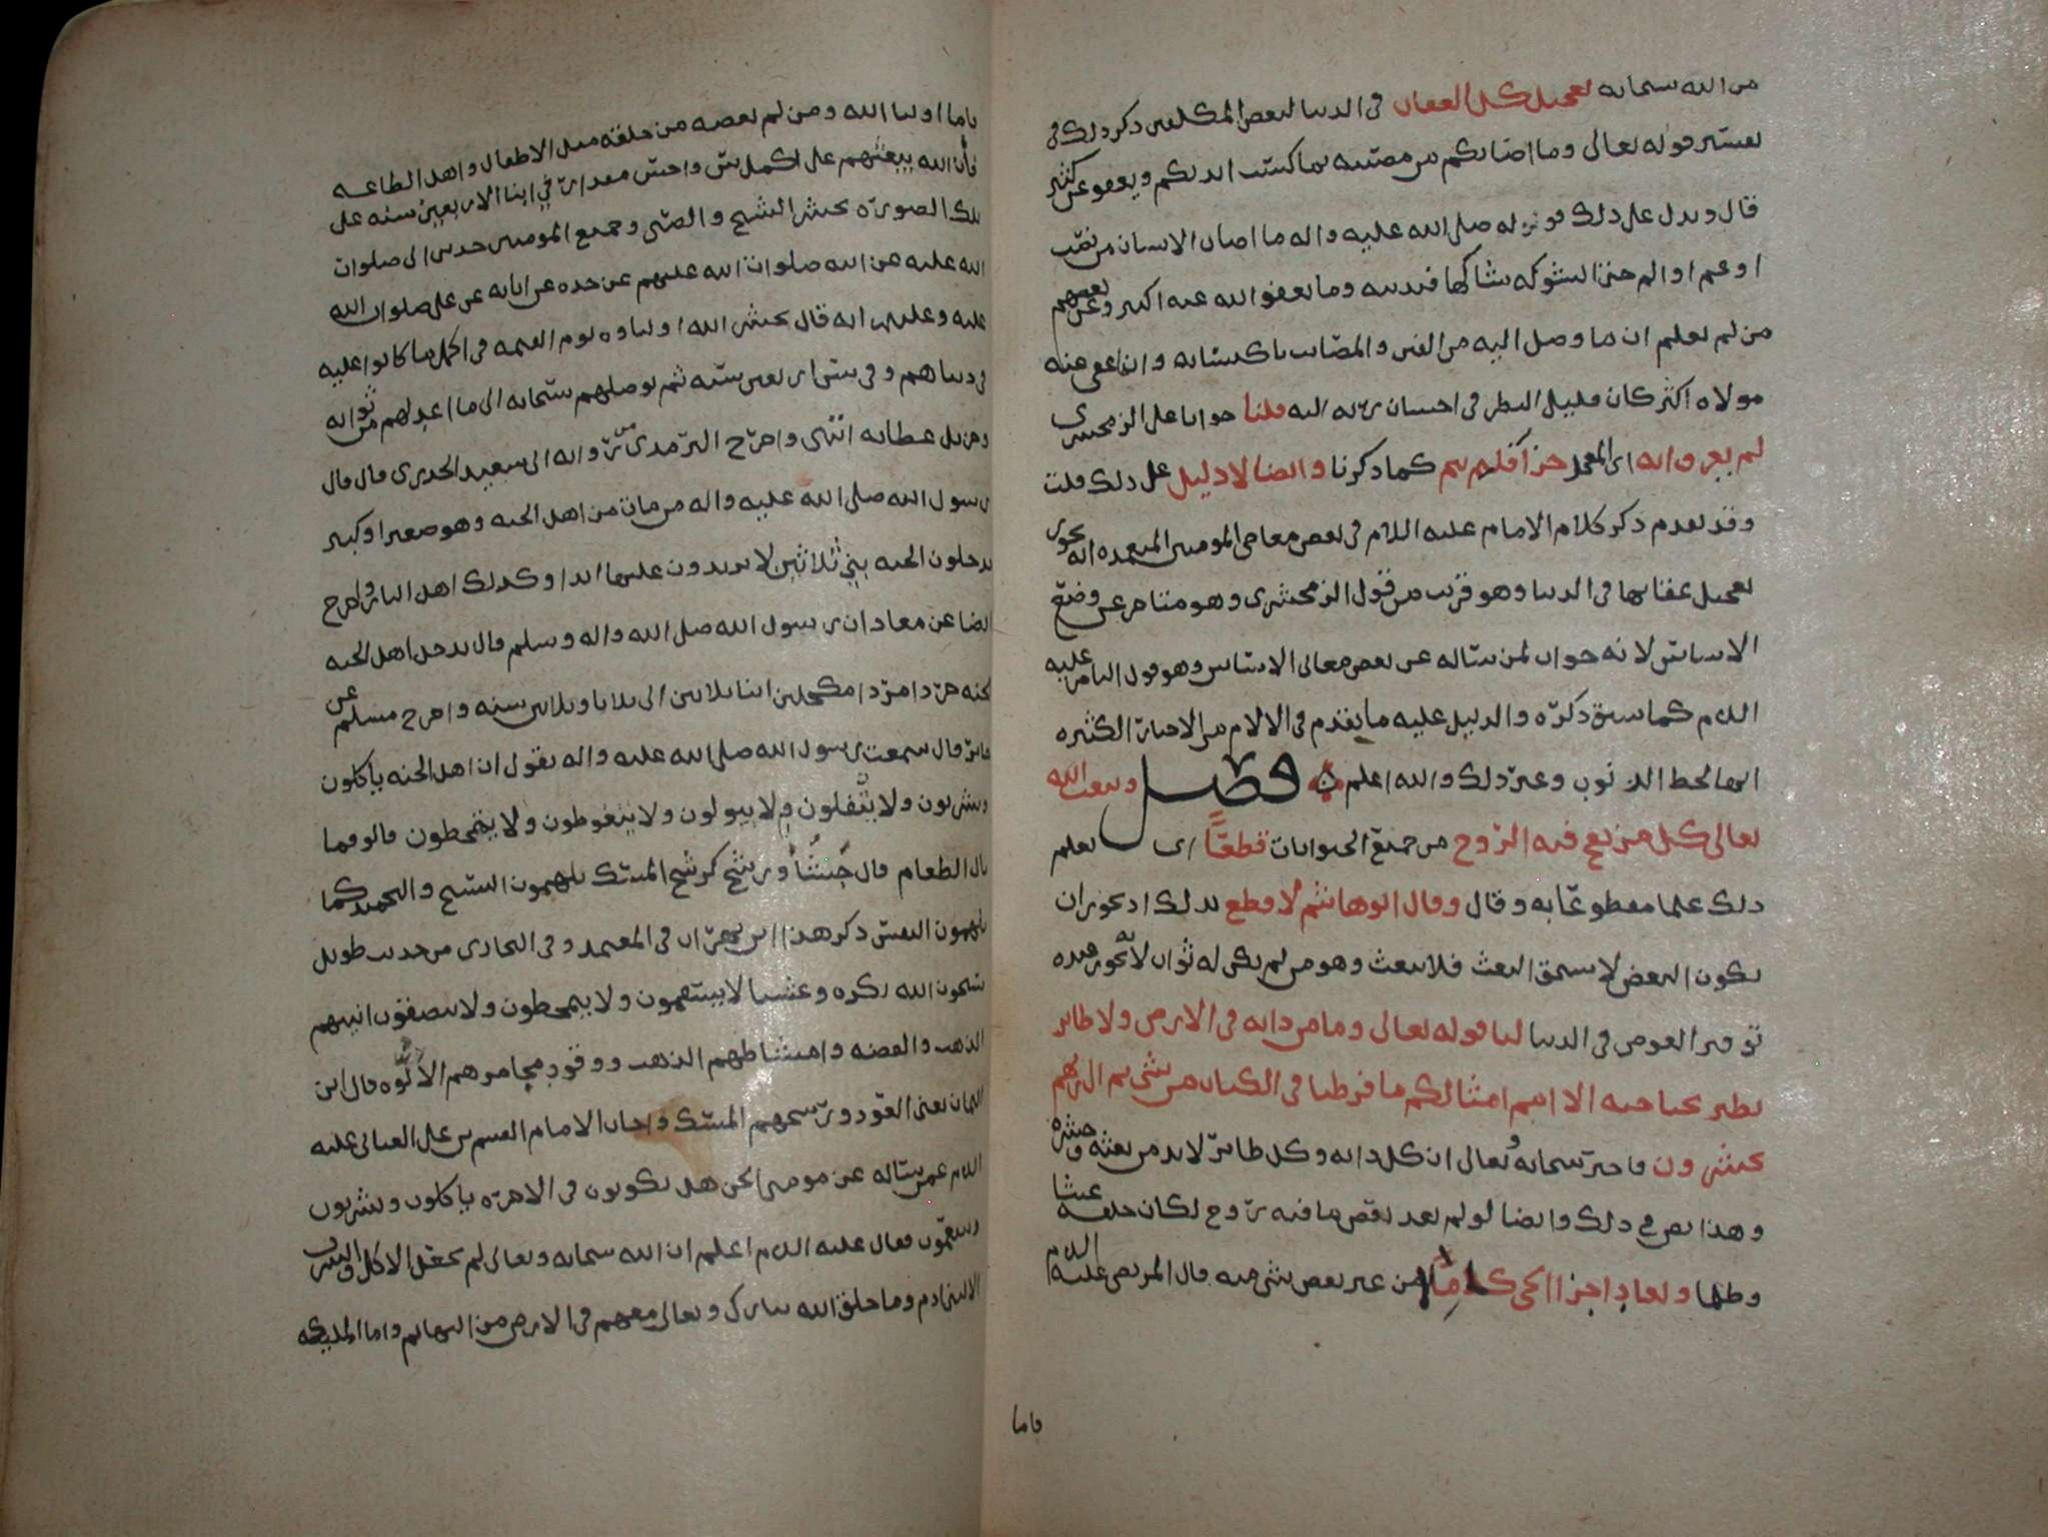 من الله سبحانه تعجيل كل العقاب في الدنيا لبعض المكلفين ذكر ذلك في
تفسير قوله تعالى وما اصابكم من مصيبه بما كسبت ايديكم ويعفو عن كثير
قال ويدل على ذلك قوله صلى الله عليه واله ما اصاب الانسان من نصب
او غم او الم حتى الشوكه يشاكها فبذنبه وما يعفو الله عنه اكبر وعن بعضهم
من لم يعلم ان ما وصل اليه من الفتن والمصائب باكتسابه وان ما عفى عنه
مولاه اكثر كان قليل النظر في احسان ربه اليه قلنا جوابا على الزمخشري
لم يعر وانه اي المعجل جزا كما ذكرنا وايضا لا دليل على ذلك قلت
وقد تقدم ذكر كلام الامام عليه اللام في بعض معاصي المومنين المتعمده انه يجوز
تعجيل عقابها في الدنيا وهو قريب من قول الزمخشري وهو متاخر عن وضع
الاساس لانه جواب لمن ساله عن بعض معاني الاساس وهو قول الناصر عليه
اللام كما سبق ذكره والدليل عليه ما تقدم في الالام من الاخبار الكثيره
انها لحط الذنوب وغير ذلك والله اعلم فصل ويبعث الله
تعالى كل من نفخ فيه الروح من جميع الحيوانات قطعًا اي يعلم
ذلك علما مقطوعا به وقال وقال ابو هاشم لا قطع بذلك اذ يجوز ان
يكون البعض لا يستحق البعث فلا يبعث وهو من لم يكن له ثواب لانه يجوز عنده
توفير العوض في الدنيا لنا قوله تعالى وما من دابه في الارض ولا طائر
يطير بجناحيه الا امم امثالكم ما فرطنا في الكتاب من شي ثم الى ربهم
يحشرون فاخبر سبحانه وتعالى ان كل دابه وكل طائر لا بد من بعثه وحشره
وهذا نص في ذلك وايضا لو لم يعد بعض ما فيه روح لكان خلقه عبثا
وظلما وتعاد اجزا الحي كاملا من غير نقص شي منه قال المرتضى عليه اللام
فاما
فاما اوليا الله ومن لم يعصه من خلقه مثل الاطفال واهل الطاعه
فان الله يبعثهم على اكمل سن واحسن مقدار في ابنا الاربعين سنه على
تلك الصوره يحشر الشيخ والصبي وجميع المومنين حدثني ابي صلوات
الله عليه عن ابيه صلوات الله عليهم عن جده عن ابائه عن علي صلوات الله
عليه وعليهم انه قال يحشر الله اولياوه يوم القيمه في اكمل ما كانوا عليه
في دنياهم وفي سن اربعين سنه ثم يوصلهم سبحانه الى ما اعد لهم من ثوابه
وجزيل عطائه انتهى واخرج الترمذي من روايه ابي سعيد الخدري قال قال
رسول الله صلى الله عليه واله من مات من اهل الجنه وهو صغير او كبير
يدخلون الجنه بني ثلاثين لا يزيدون عليها ابدا وكذلك اهل النار واخرج
ايضا عن معاذ ان رسول الله صلى الله واله وسلم قال يدخل اهل الجنه
الجنه جردا مردا مكحلين ابنا ثلاثين الى ثلاثا وثلاثين سنه واخرج مسلم عن
جابر قال سمعت رسول الله صلى الله عليه واله يقول ان اهل الجنه ياكلون
ويشربون ولا يتفلون ولا يبولون ولا يتغوطون ولا يتمخطون قالو فما
بال الطعام قال جشا ورشح كرشح المسك يلهمون التسبيح والتحميد كما
يلهمون النفس ذكر هذا ابن بهران في المعتمد وفي البخاري من حديث طويل
يسبحون الله بكره وعشيا لا يسقمون ولا يتمخطون ولا يبصقون انيتهم
الذهب والفضه وامشاطهم الذهب ووقود مجامرهم الالوه قال ابن
اليمان يعني العود ورشحهم المسك واجاب الامام القسم بن علي العياني عليه
اللام عمن ساله عن مومني الجن هل يكونون في الاخره ياكلون ويشربون
وينعمون فقال عليه اللام اعلم ان الله سبحانه وتعالى لم يجعل الاكل والشرب
الا لبني ادم وما خلق الله تبارك وتعالى معهم في الارض من البهائم واما المليكه